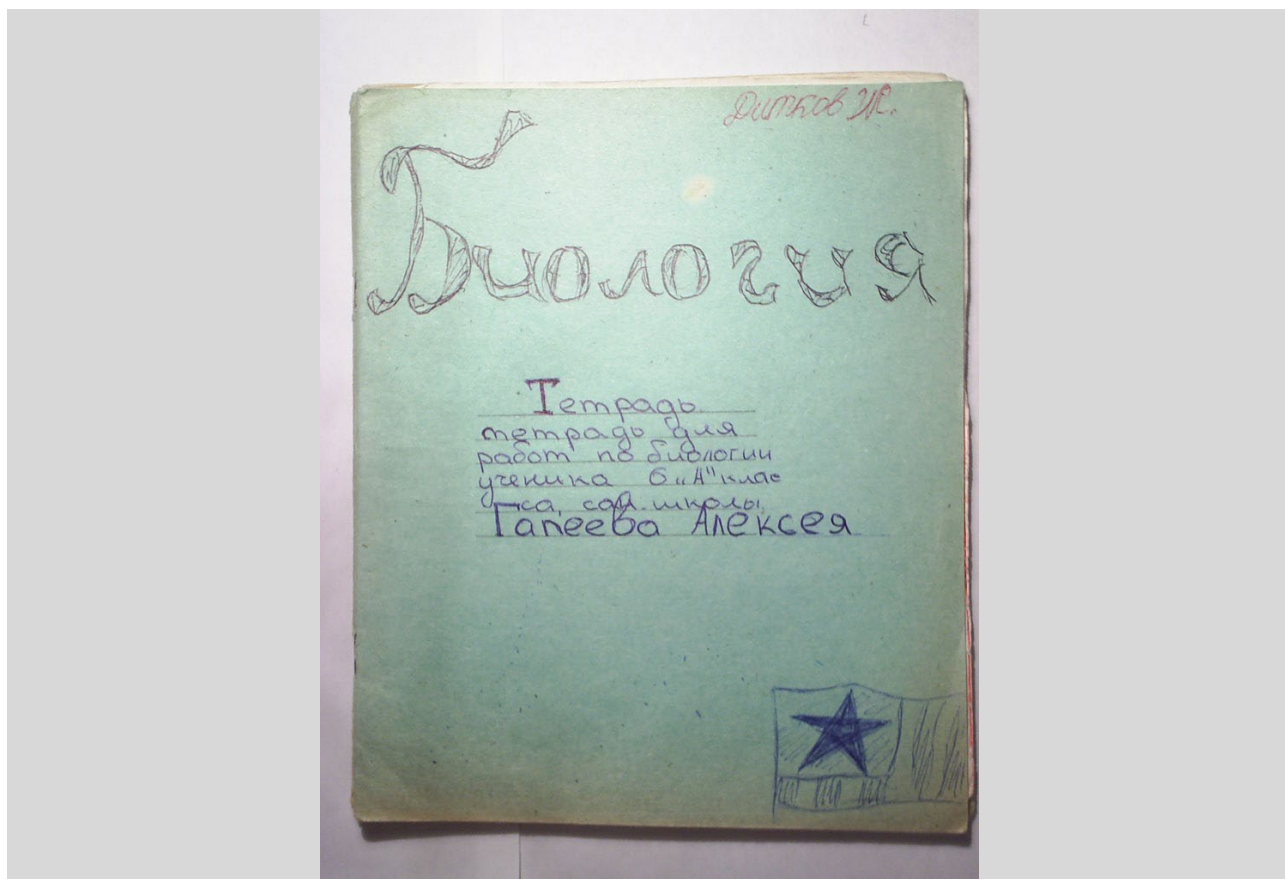 Дитков Ж.
Биология
Тетрадь
тетрадь для
работ по биологии
ученика 6 „А" клас
са, сан. школы
Гапеева Алексея